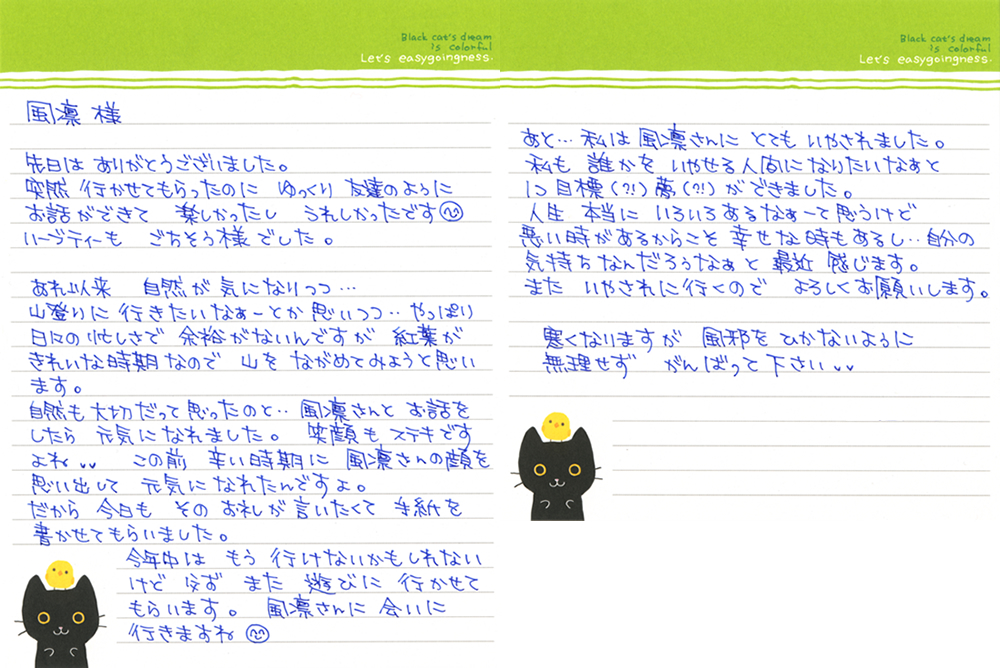 Black cat's dream
is colorful
Let's easygoingness.
風凛 様
先日は ありがとうございました。
突然 行かせてもらったのに ゆっくり 友達のように
お話ができて 楽しかったし うれしかったです
ハーブティーも ごちそう様でした。
あれ以来 自然が 気になりつつ…
山登りに 行きたいなぁーとか 思いつつ‥ やっぱり
日々の忙しさで 余裕がないんですが 紅葉が
きれいな時期なので 山を ながめてみようと思い
ます。
自然も大切だって思ったのと‥ 風凛さんと お話を
したら 元気になれました。 笑顔も ステキです
よね この前 辛い時期に 風凛さんの顔を
思い出して 元気になれたんですよ。
だから 今日も その お礼が言いたくて 手紙を
書かせてもらいました。
今年中は もう 行けないかもしれない
けど 必ず また 遊びに 行かせて
もらいます。 風凛さんに 会いに
行きますね
Black cat's dream
is colorful
Let's easygoingness.
あと… 私は 風凛さんに とても いやされました。
私も 誰かを いやせる人間になりたいなぁと
1つ 目標(?!) 夢(?!) ができました。
人生 本当に いろいろあるなぁーて思うけど
悪い時があるからこそ 幸せな時もあるし‥自分の
気持ちなんだろうなぁと 最近 感じます。
また いやされに行くので よろしくお願いします。
寒くなりますが 風邪を ひかないように
無理せず がんばって下さい